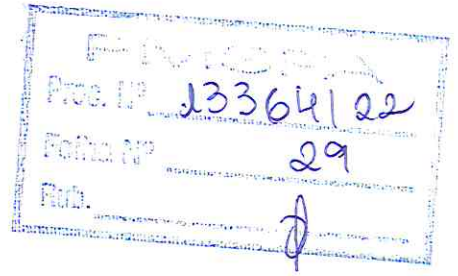 Proc. Nº 13364/22
Folha Nº 29
Rub.